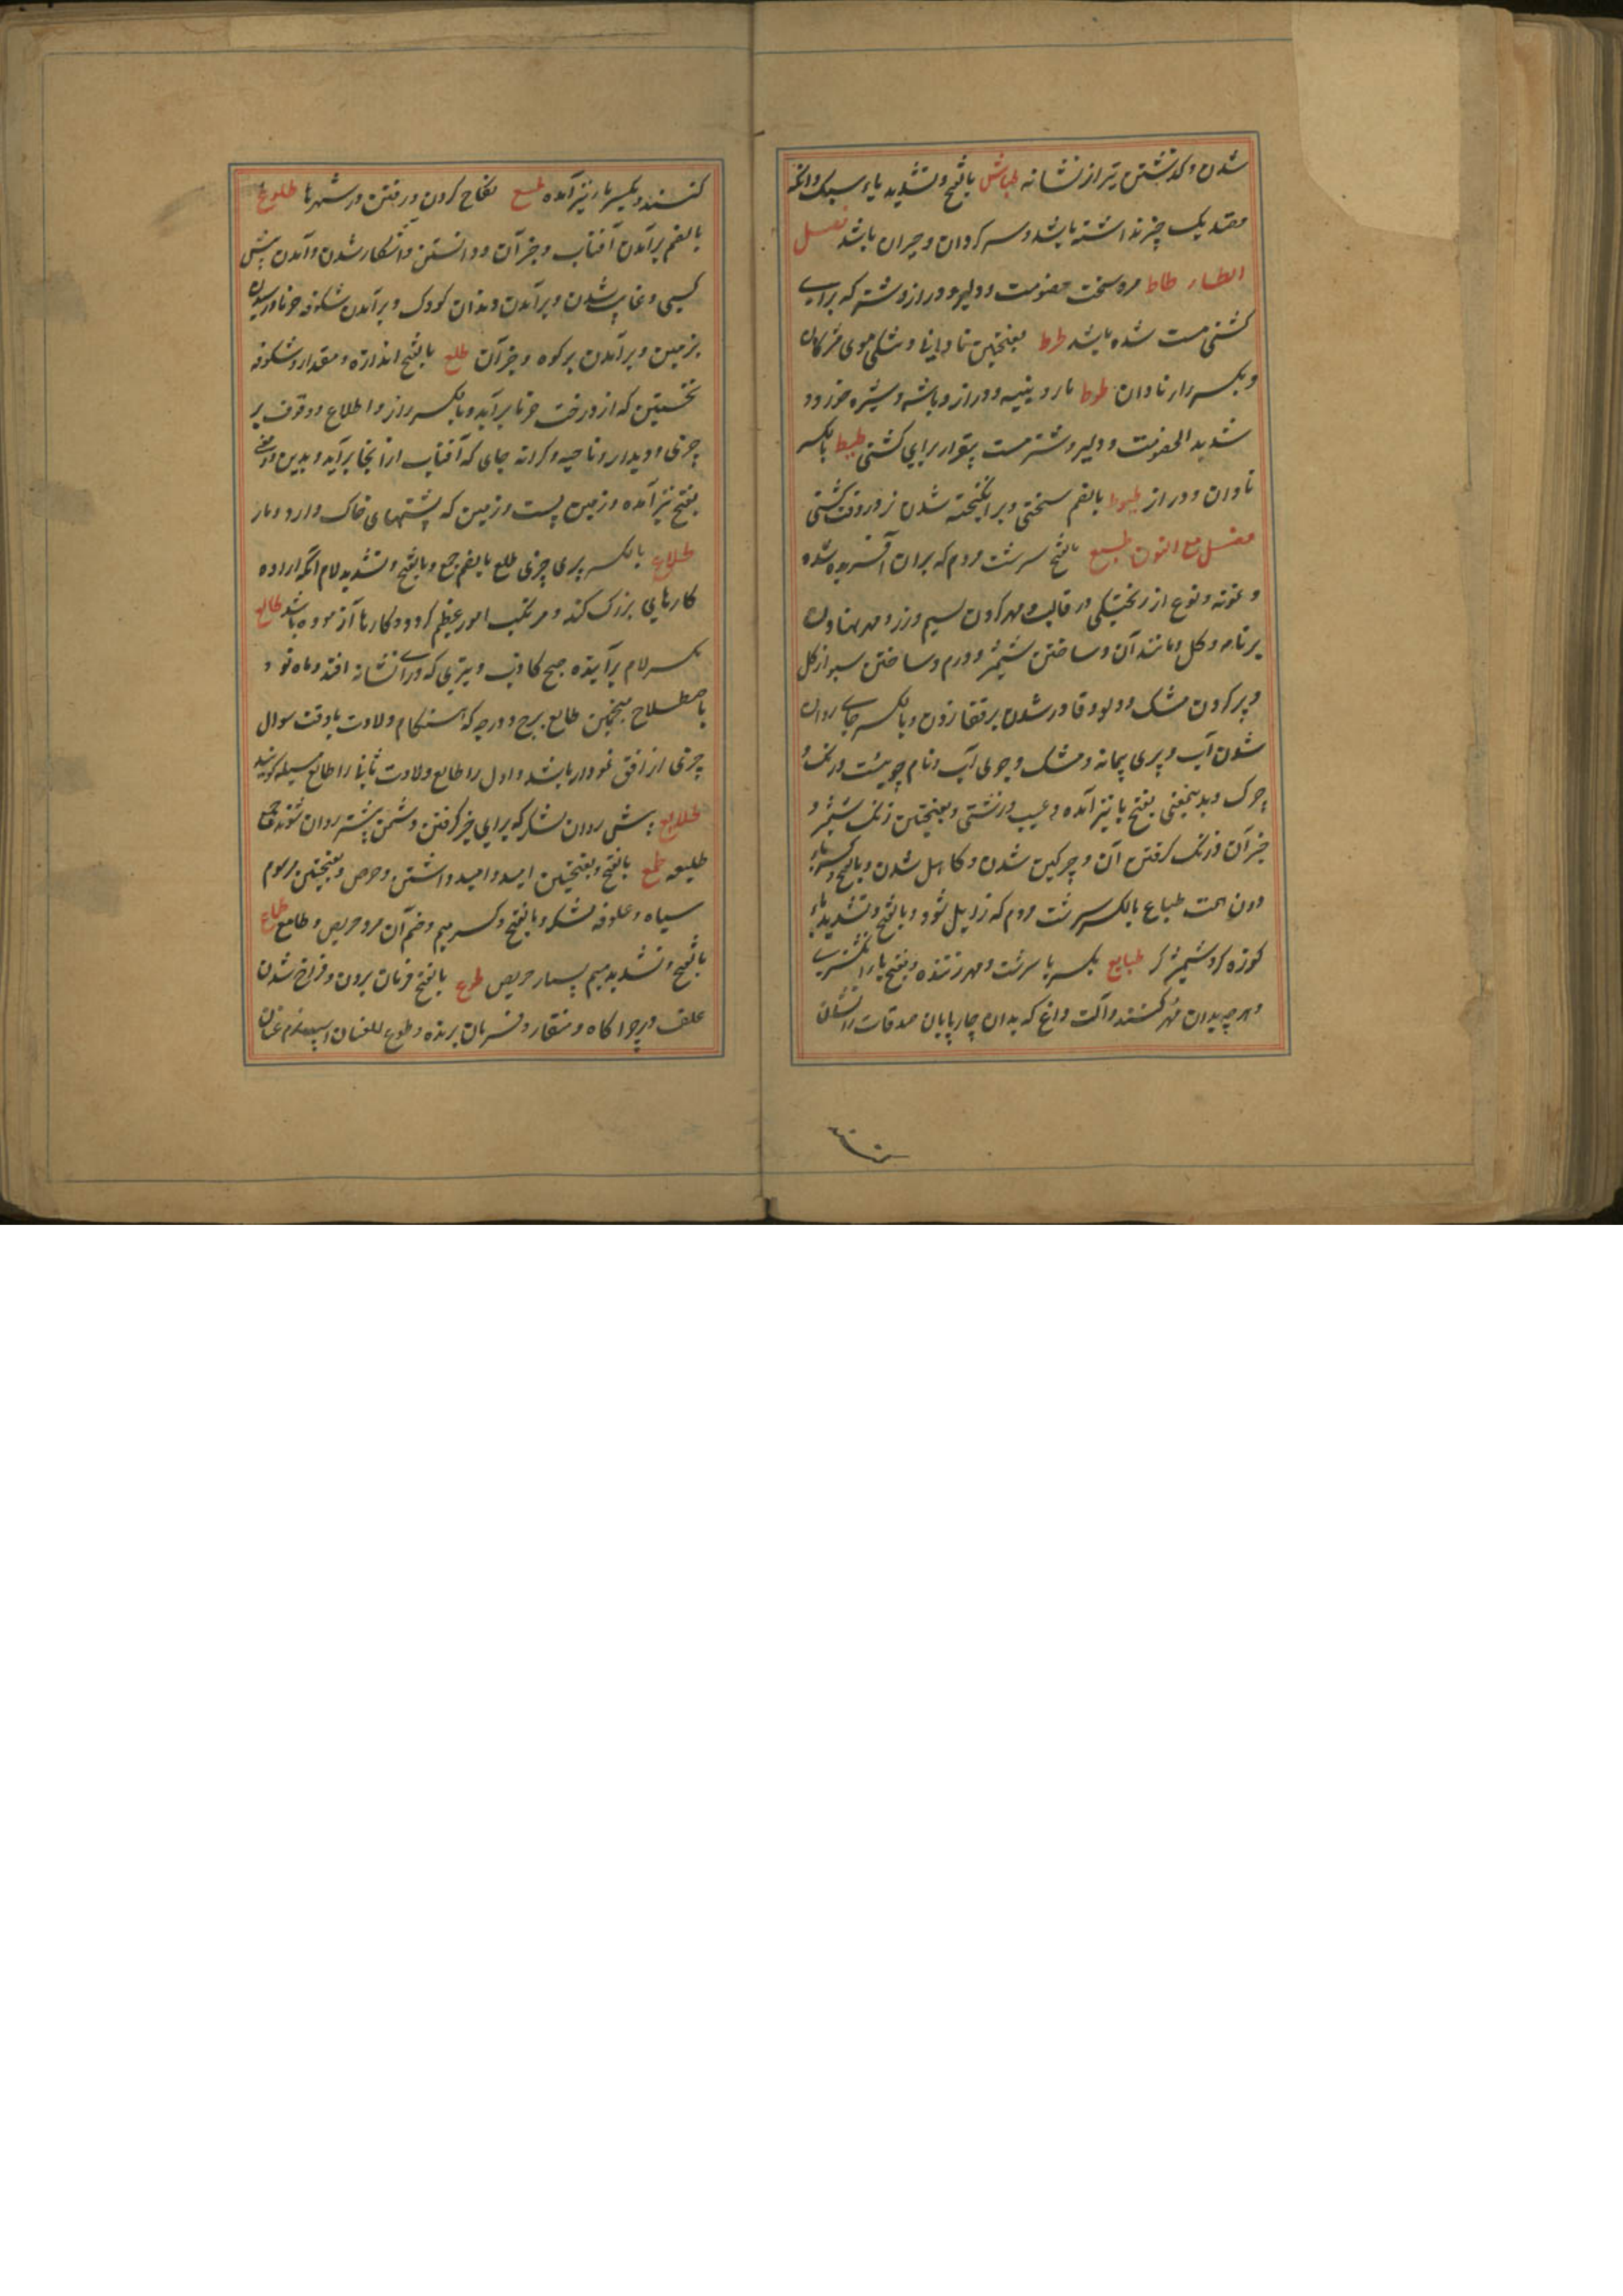 شدن و گذشتن تیر از نشانه طیاش بالفتح و تشدید یاء سبک و آنکه
مقید یک چیز نداشته باشد و سر کردان و حیران باشد فصل
الطاء طاط مرد سخت خصومت و دلیر و دراز و شتر که برای
کشنی مست شده باشد طرط بفتحتین نادانی و تنکی موی مژکان
و بکسر را نادان طوط مار و پنبه و دراز و باشه و شپره خرد و
شدید الخصومت و دلیر و شتر مست بیقرار برای کشنی طیط بالکسر
نادان و دراز طیوط بالضم سختی و برانکیخته شدن نر در وقت کشنی
فصل مع العین طبع بالفتح سرشت مردم که بران آفریده شده
و نمونه و نوع از ریختکی در قالب و مهر کردن سیم و زر و مهر نهادن
بر نامه و کل و مانند آن و ساختن شمشیر و درم و ساختن سبو از کل
و پر کردن مشک و دلو و قادر شدن بر قفا زدن و بالکسر جای روان
شدن آب و پری پیمانه و مشک و جوی آب و نام جویست و زنک و
چرک و بدینمعنی بفتح با نیز آمده و عیب و زشتی و بفتحتین زنک شمشیر و
جز آن و زنک کرفتن آن و چرکین شدن و کاهل شدن و بالفتح و کسر باء
دون همت طباع بالکسر سرشت مردم که زایل نشود و بالفتح و تشدید باء
کوزه کر و شمشیر کر طبایع بکسر با سرشت و مهر زننده و بفتح با انکشتری
و هر چه بدان مهر کنند و آلت داغ که بدان چارپایان صدقات را نشان
کنند و بکسر با نیز آمده طسع نکاح کردن و رفتن در شهرها طلوع
بالضم برآمدن آفتاب و جز آن و دانستن و آشکار شدن و آمدن پیش
کسی و غایب شدن و برآمدن دندان کودک و برآمدن شکوفه خرما و رسیدن
بزمین و برآمدن بر کوه و جز آن طلع بالفتح اندازه و مقدار و شکوفه
نخستین که از درخت خرما برآید و بالکسر راز و اطلاع و وقوف بر
چیزی و دیدار و ناحیه و کرانه جای که آفتاب از آنجا برآید و بدین دو معنی
بفتح نیز آمده و زمین پست و زمین که پشتهای خاک دارد و مار
طلاع بالکسر پری چیزی طلع بالضم جمع و بالفتح و تشدید لام آنکه اراده
کارهای بزرک کند و مرتکب امور عظیم کردد و کارها آزموده باشد طالع
بکسر لام برآینده صبح کاذب و تیری که ورای نشانه افتد و ماه نو و
باصطلاح منجمین طالع برج و درجه که هنکام ولادت یا وقت سوال
چیزی از افق نمودار باشد و اول را طالع ولادت ثانیا را طالع مسیله کویند
طلایع پیش روان لشکر که برای خبر کرفتن دشمن پیشتر روان شوند جمع
طلیعه طمع بالفتح و بفتحتین امید و امید داشتن و حرص و بفتحتین مرسوم
سپاه و علوفه لشکر و بالفتح و کسر میم و ضم آن مرد حریص و طامع طماع
بالفتح و تشدید میم بسیار حریص طوع بالفتح فرمان بردن و فراخ شدن
علف و چراکاه و منقاد و فرمان برنده و طوع العنان اسپ نرم عنان